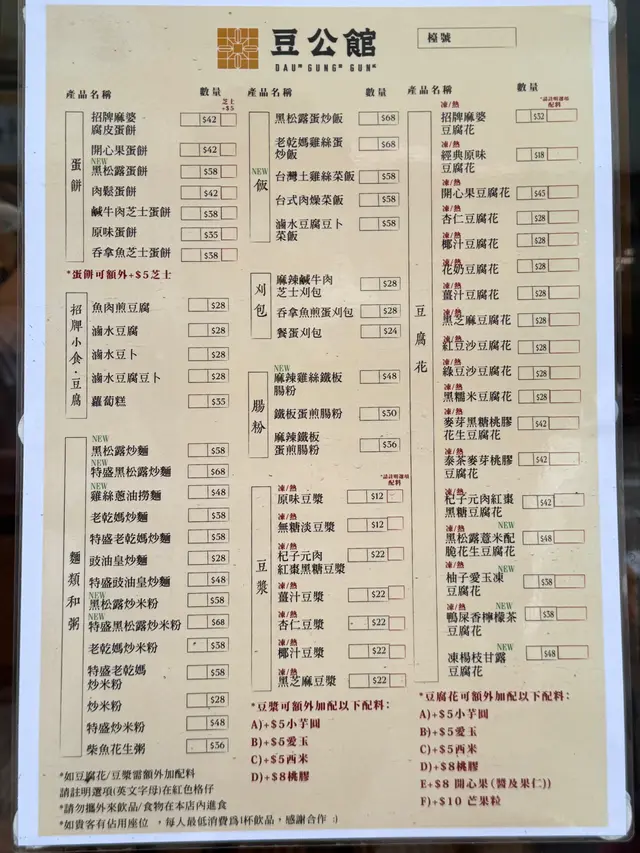 豆公館
DAU GUNG GUN
檯號
產品名稱 數量 芝士+$5
蛋餅
招牌麻婆
腐皮蛋餅 $42
開心果蛋餅 $42
NEW
黑松露蛋餅 $58
肉鬆蛋餅 $42
鹹牛肉芝士蛋餅 $38
原味蛋餅 $35
吞拿魚芝士蛋餅 $38
*蛋餅可額外+$5芝士
招牌小食·豆腐
魚肉煎豆腐 $28
滷水豆腐 $28
滷水豆卜 $28
滷水豆腐豆卜 $28
蘿蔔糕 $35
麵類和粥
NEW
黑松露炒麵 $58
NEW
特盛黑松露炒麵 $68
NEW
雞絲蔥油撈麵 $48
老乾媽炒麵 $38
特盛老乾媽炒麵 $58
豉油皇炒麵 $28
特盛豉油皇炒麵 $48
NEW
黑松露炒米粉 $58
NEW
特盛黑松露炒米粉 $68
老乾媽炒米粉 $38
特盛老乾媽
炒米粉 $58
炒米粉 $28
特盛炒米粉 $48
柴魚花生粥 $36
*如豆腐花/豆漿需額外加配料
請註明選項(英文字母)在紅色格仔
*請勿攜外來飲品/食物在本店內進食
*如貴客有佔用座位 ，每人最低消費爲1杯飲品，感謝合作 :)
產品名稱 數量
NEW 飯
黑松露蛋炒飯 $68
老乾媽雞絲蛋
炒飯 $68
台灣土雞絲菜飯 $58
台式肉燥菜飯 $58
滷水豆腐豆卜
菜飯 $58
刈包
麻辣鹹牛肉
芝士刈包 $28
吞拿魚煎蛋刈包 $28
餐蛋刈包 $24
腸粉
NEW
麻辣雞絲鐵板
腸粉 $48
鐵板蛋煎腸粉 $30
麻辣鐵板
蛋煎腸粉 $36
豆漿
*請註明選項
配料
凍/熱
原味豆漿 $12
凍/熱
無糖淡豆漿 $12
凍/熱
杞子元肉
紅棗黑糖豆漿 $22
凍/熱
薑汁豆漿 $22
凍/熱
杏仁豆漿 $22
凍/熱
椰汁豆漿 $22
凍/熱
黑芝麻豆漿 $22
*豆漿可額外加配以下配料：
A)+$5小芋圓
B)+$5愛玉
C)+$5西米
D)+$8桃膠
產品名稱 數量
豆腐花
*請註明選項
配料
凍/熱
招牌麻婆
豆腐花 $32
凍/熱
經典原味
豆腐花 $18
凍/熱
開心果豆腐花 $45
凍/熱
杏仁豆腐花 $28
凍/熱
椰汁豆腐花 $28
凍/熱
花奶豆腐花 $28
凍/熱
薑汁豆腐花 $28
凍/熱
黑芝麻豆腐花 $28
凍/熱
紅豆沙豆腐花 $28
凍/熱
綠豆沙豆腐花 $28
凍/熱
黑糯米豆腐花 $28
凍/熱
麥芽黑糖桃膠
花生豆腐花 $42
凍/熱
泰茶麥芽桃膠
豆腐花 $42
凍/熱
杞子元肉紅棗
黑糖豆腐花 $42
凍/熱 NEW
黑松露薏米配
脆花生豆腐花 $48
凍/熱 NEW
柚子愛玉凍
豆腐花 $38
凍/熱 NEW
鴨屎香檸檬茶
豆腐花 $38
NEW
凍楊枝甘露
豆腐花 $48
*豆腐花可額外加配以下配料：
A)+$5小芋圓
B)+$5愛玉
C)+$5西米
D)+$8桃膠
E+$8 開心果(醬及果仁))
F)+$10 芒果粒